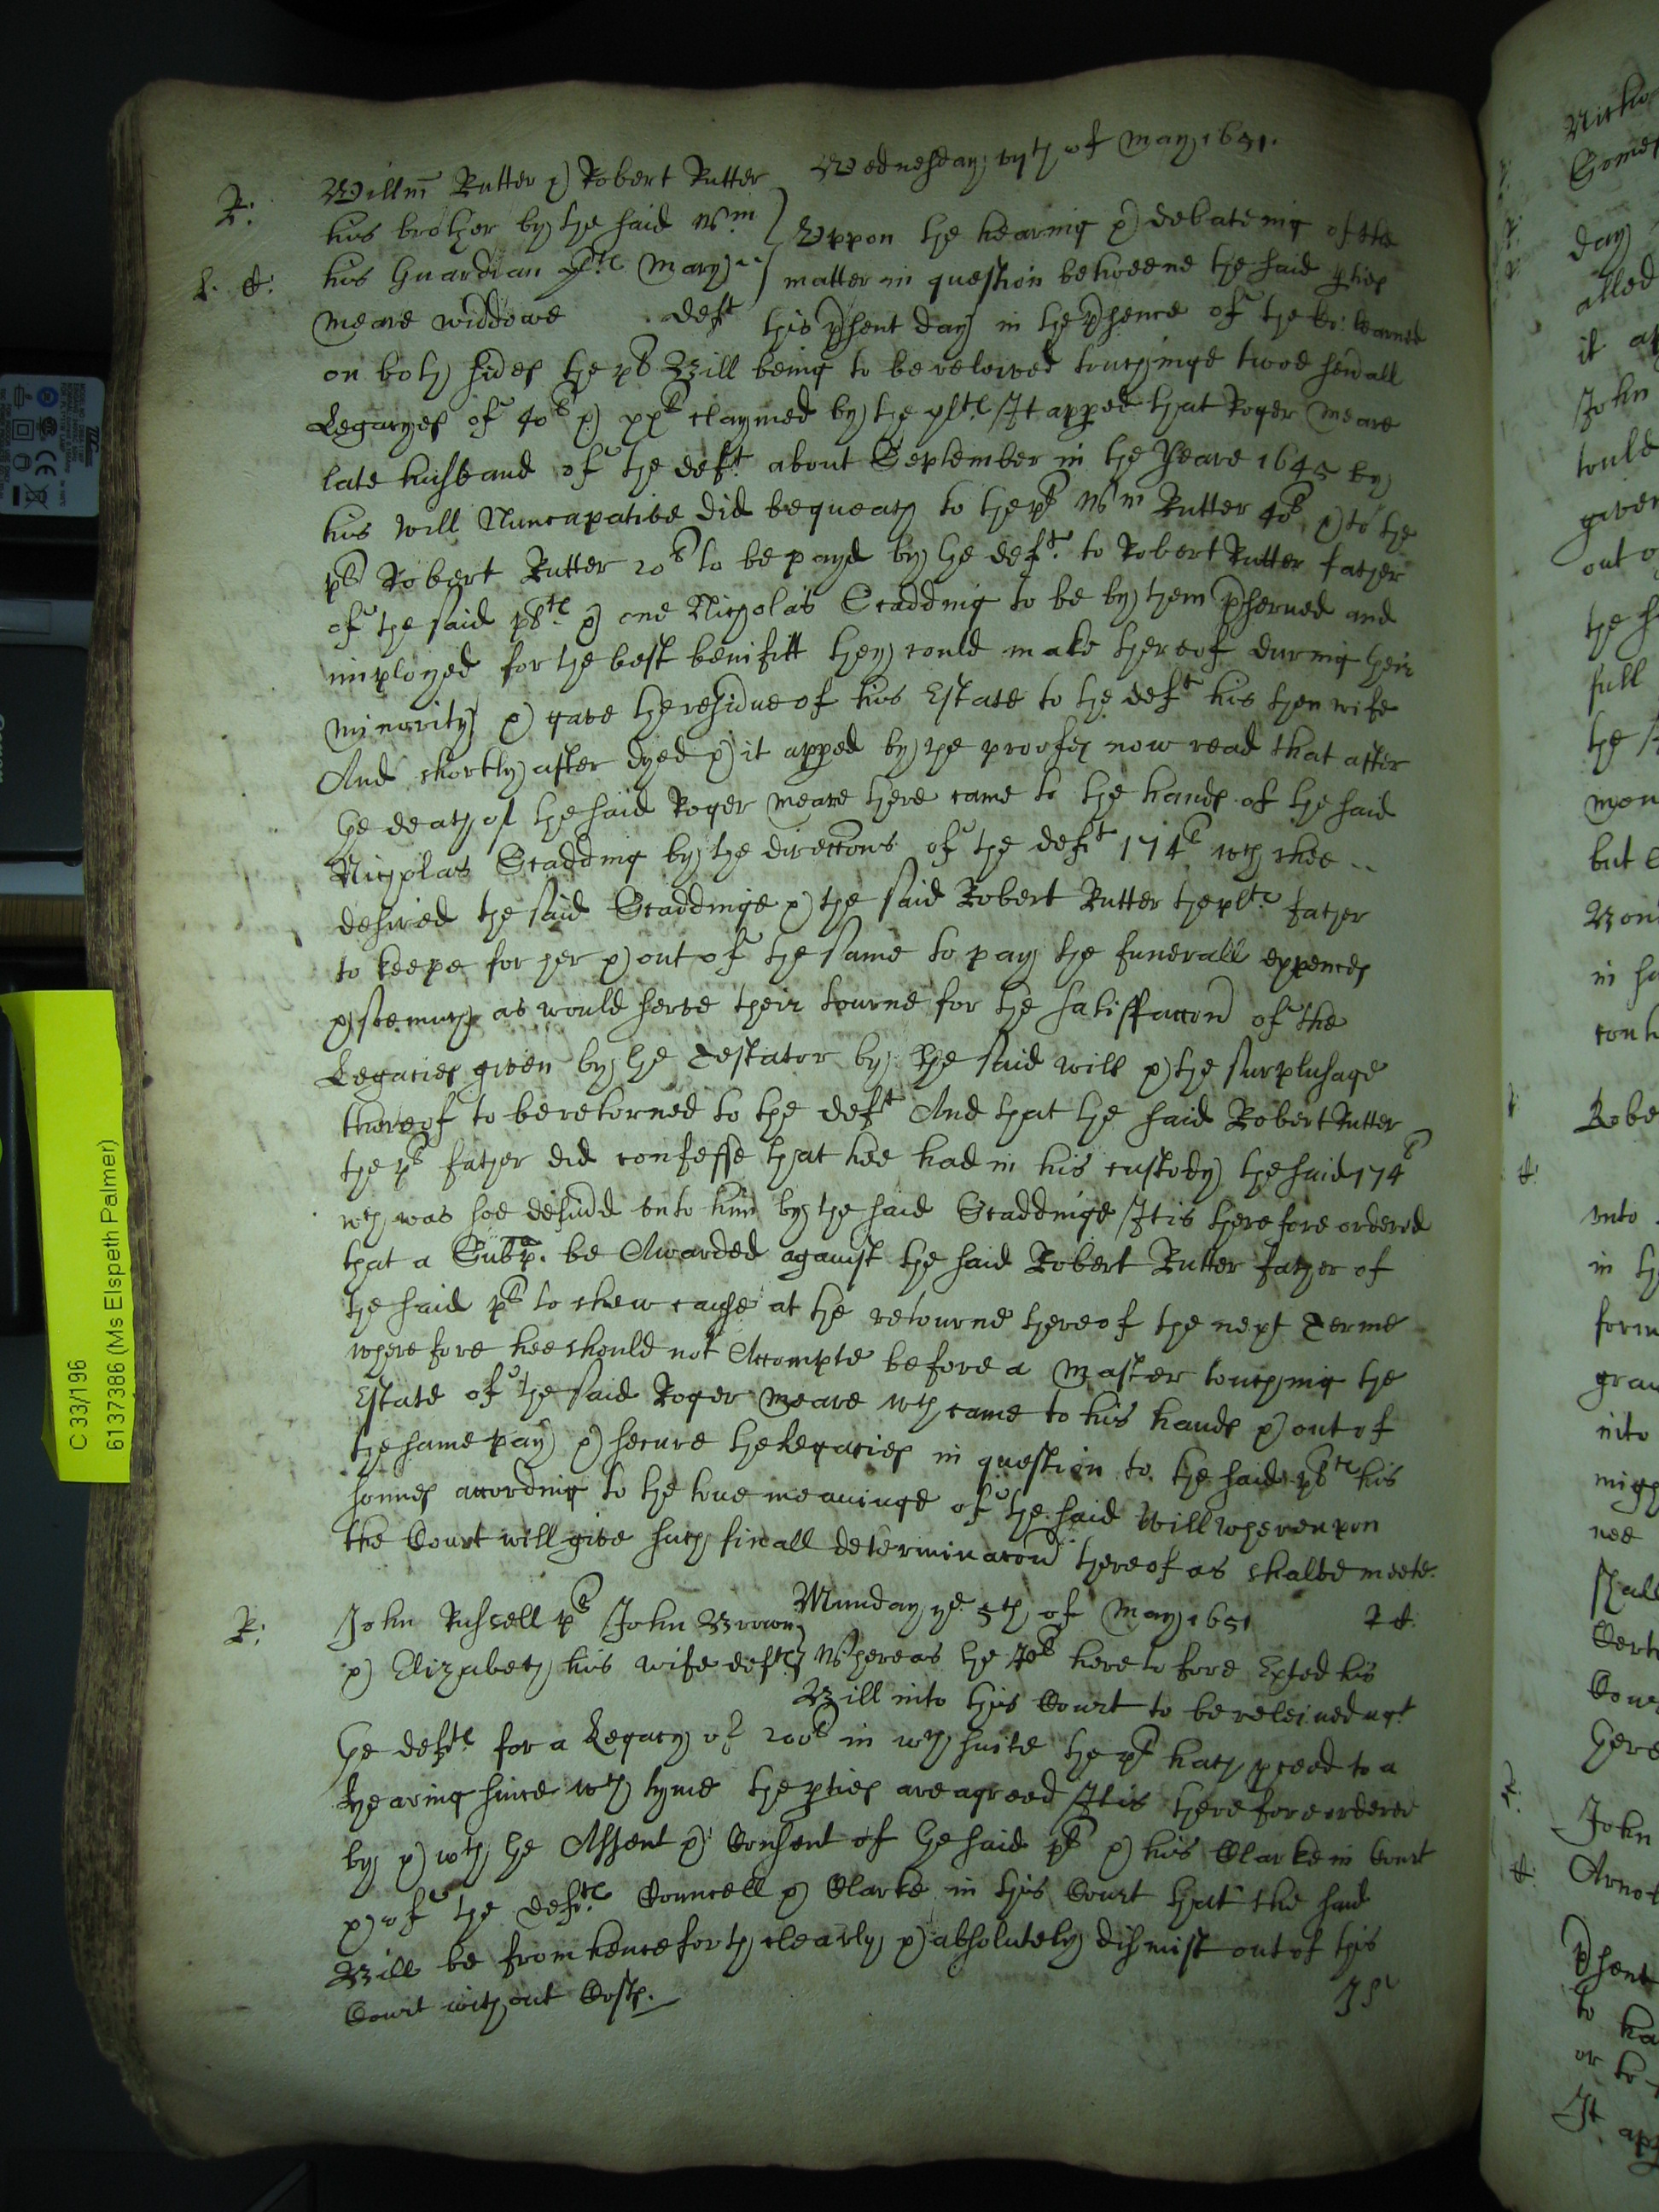 Wednesday 7th of May 1651.
R: Willm Rutter & Robert Rutter
his brother by the said Wm
his Guardian pltes Mary
Meare widdowe deft
Uppon the hearing & debateing of the
matter in question betweene the said pties
this psent day in the psence of the Co: learned
on both sides the pts Bill being to be releived touchinge twoe sevall
Legacyes of 40l & xxl claymed by the pltes It apped that Roger Meare
late husband of the deft about September in the Yeare 1645 by
his will Nuncapative did bequeath to the pt Wm Rutter 40l & to the
pt Robert Rutter 20l to be payd by the deft to Robert Rutter father
of the said ptes & one Nicholas Scadding to be by them pserved and
imployed for the best benifitt they could make thereof during their
minority & gave the residue of his Estate to the deft his then wife
And shortly after dyed & it apped by the proofes now read that after
the death of the said Roger Meare there came to the hands of the said
Nicholas Scadding by the direccons of the deft 174l wch shee
desired the said Scaddinge & the said Robert Rutter the pltes father
to keepe for her & out of the same to pay the funerall expences
& soe much as would serve their tourne for the satisfaccon of the
Legacies given by the Testator by the said will & the surplusage
thereof to be retorned to the deft And that the said Robert Rutter
the pts father did confesse that hee had in his custody the said 174l
wch was soe delivd unto him by the said Scaddinge It is therefore ordered
that a Subp. be Awarded against the said Robert Rutter father of
the said pt to shew cause at the retourne thereof the next Terme
wherefore hee should not Accompte before a Master touching the
Estate of the said Roger Meare wch came to his hands & out of
the same pay & secure the legacies in question to the said ptes his
sonnes according to the true meaninge of the said Will whereupon
the Court will give such finall determinacon thereof as shalbe meete.
Munday ye 5th of May 1651
R: John Russell pt John Brown
& Elizabeth his wife deftes
Whereas the pt heretofore Exted his
Bill into this Court to be releived agt
the deftes for a Legacy of 200l in wch suite the pt hath pceed to a
hearing since wch tyme the pties are agreed It is therefore ordered
by & wth the Assent & Consent of the said pt & his Clarke in Court
& of the deftes Councell & Clarke in this Court that the said
Bill be from henceforth clearly & absolutely dismist out of this
Court without Costs.
C 33/196
61373386 (Ms Elspeth Palmer)